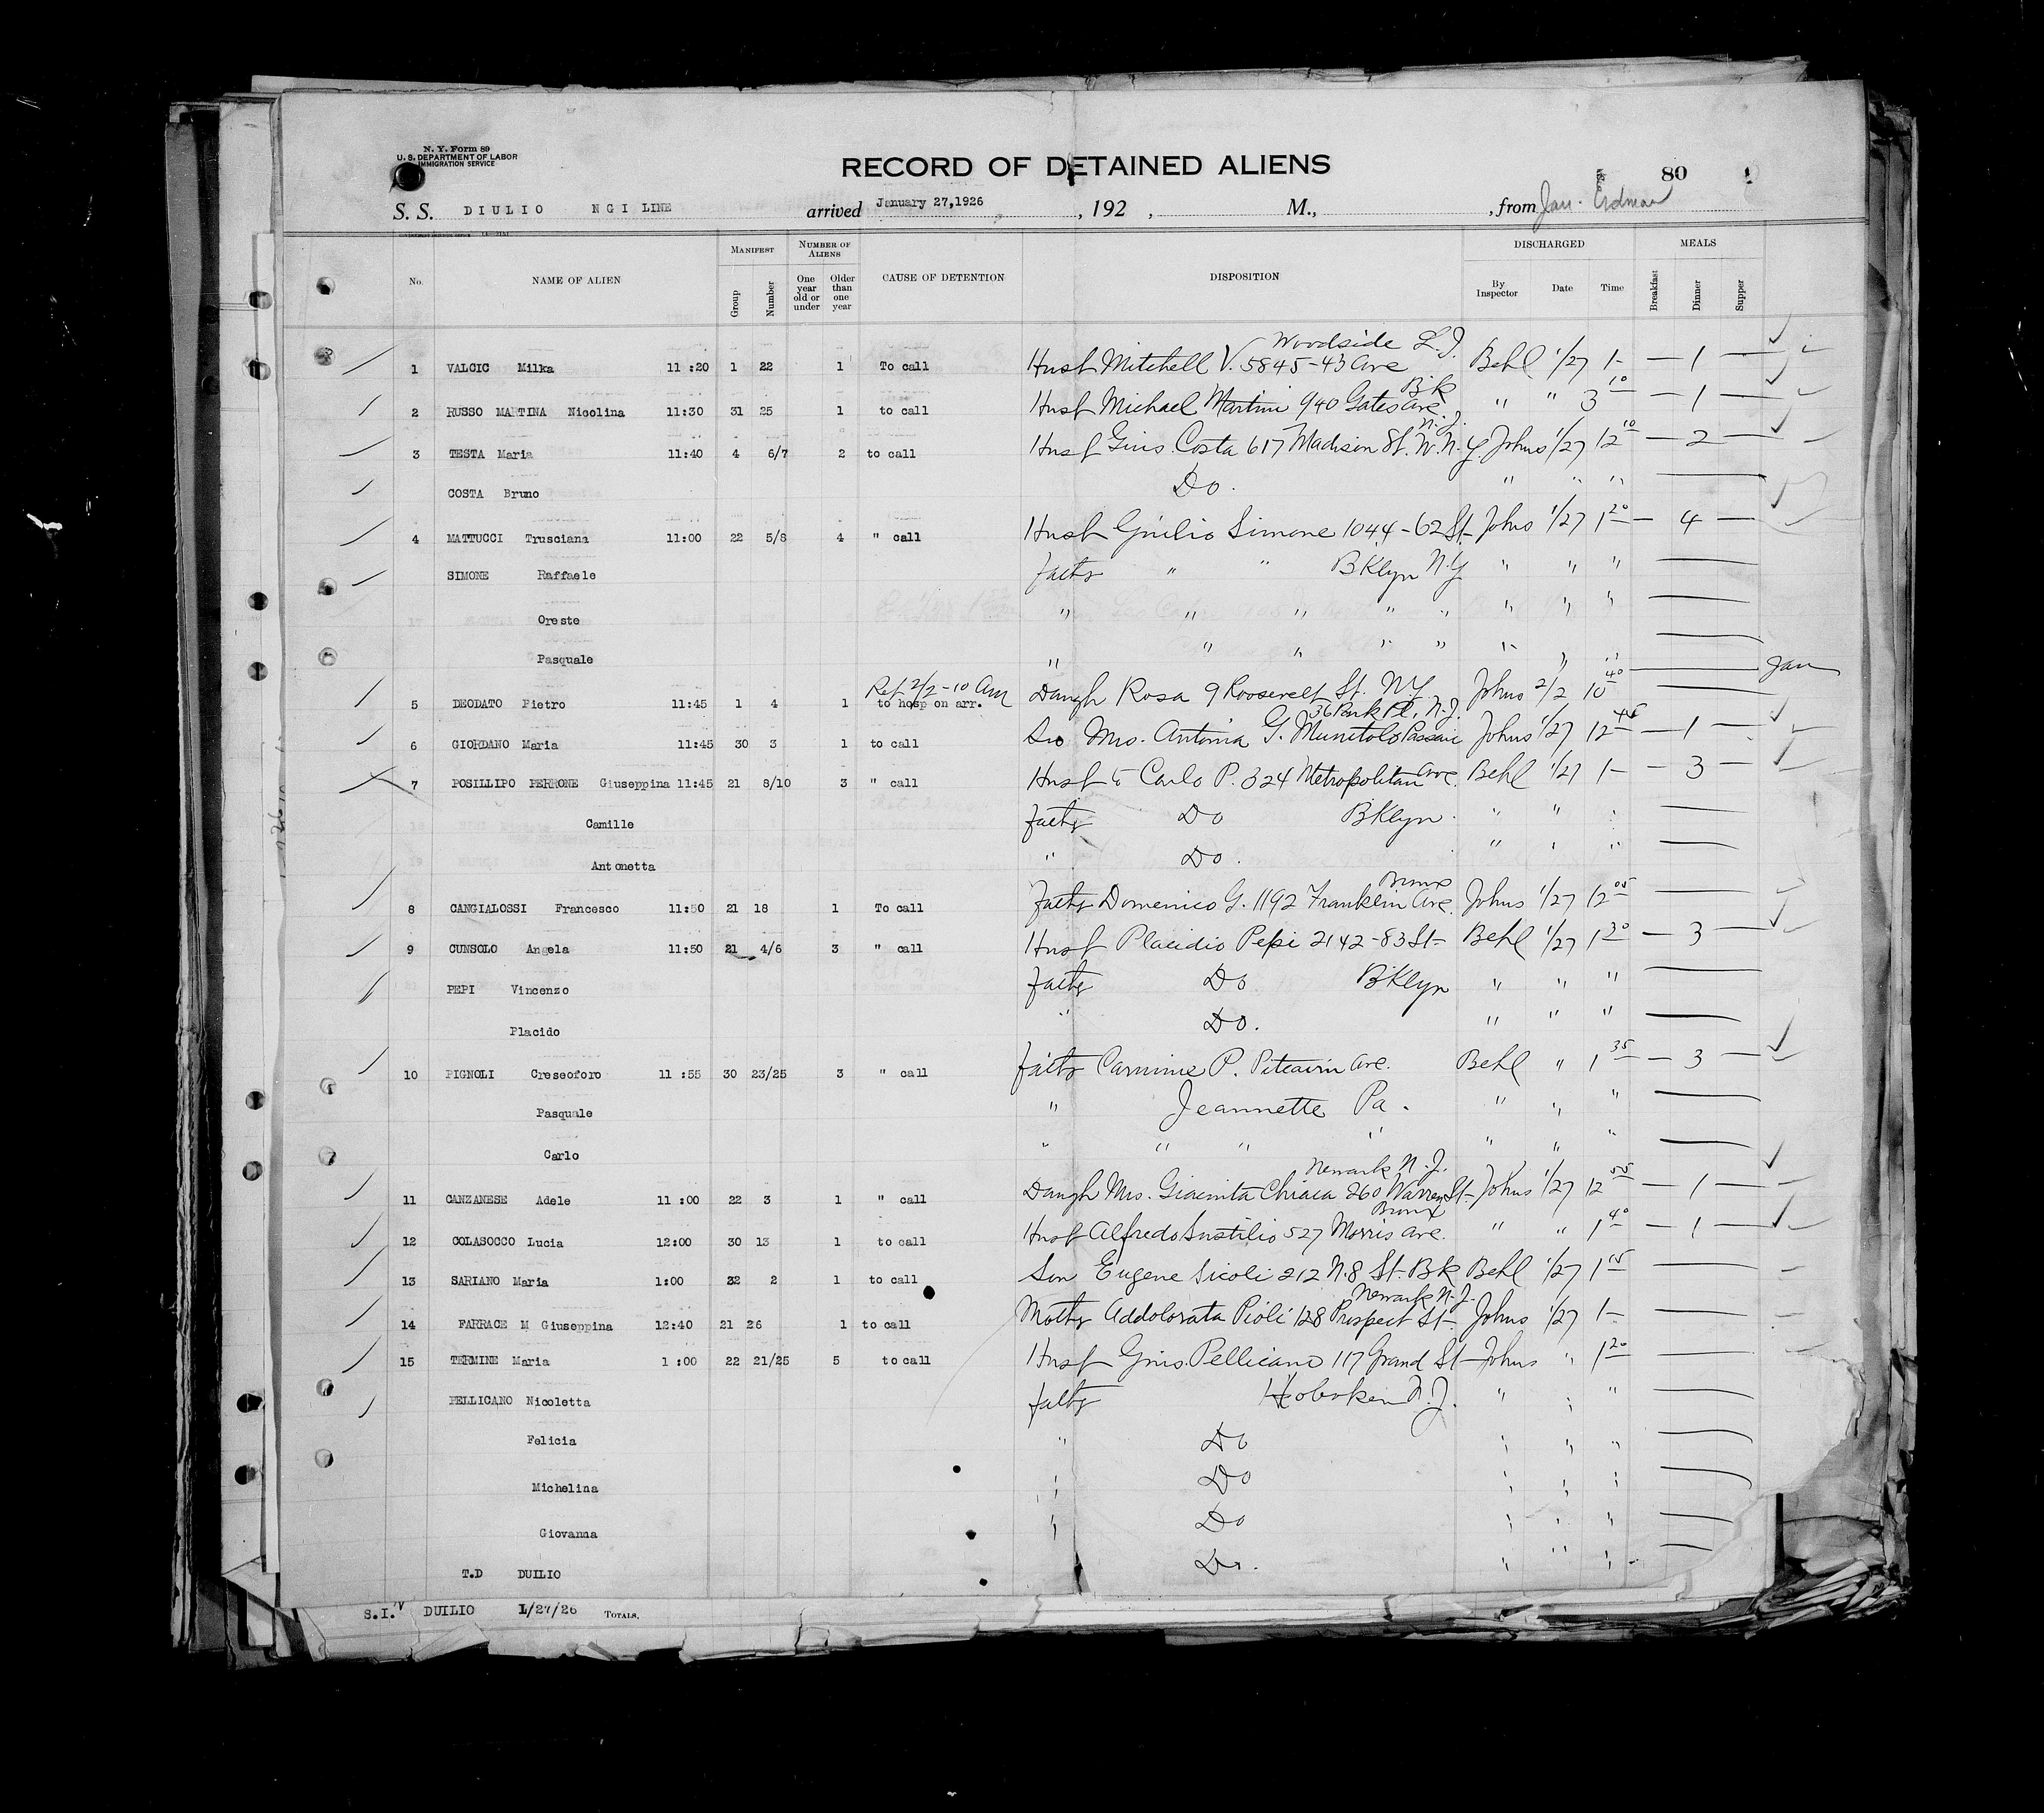 N. Y. Form 89
U. S. DEPARTMENT OF LABOR
IMMIGRATION SERVICE
RECORD OF DETAINED ALIENS
80
S. S. DIULIO NGI LINE arrived January 27,1926 , 192 , M., , from Jan. Erdman
No. NAME OF ALIEN MANIFEST Group Number NUMBER OF ALIENS One year old or under Older than one year CAUSE OF DETENTION DISPOSITION DISCHARGED By Inspector Date Time MEALS Breakfast Dinner Supper
Woodside L.I.
1 VALCIC Milka 11 :20 1 22 1 To call Husb Mitchell V. 5845-43 Ave Behl 1/27 1- — 1 —
Bk
2 RUSSO MARTINA Nicolina 11:30 31 25 1 to call Husb Michael Martini 940 Gates Ave. " " 3 10 — 1 —
N.J.
3 TESTA Maria 11:40 4 6/7 2 to call Husb Gius. Costa 617 Madison St. W.N.Y. Johns 1/27 12 10 — 2 —
COSTA Bruno Do. " " "
4 MATTUCCI Trusciana 11:00 22 5/8 4 " call Husb Giulio Simone 1044-62 St- Johns 1/27 1 20 — 4 —
SIMONE Raffaele Fathr " " BKlyn N.Y " " "
Oreste " " " " " " " "
Pasquale " " " " " " " "
Jan
Ret 2/2-10 Am
5 DEODATO Pietro 11:45 1 4 1 to hosp on arr. Daugh Rosa 9 Roosevelt St. N.Y. Johns 2/2 10 40
36 Park Pl. N.J.
6 GIORDANO Maria 11:45 30 3 1 to call Sis Mrs. Antonia G. Munitolo Passaic Johns 1/27 12 45 — 1 —
7 POSILLIPO PERRONE Giuseppina 11:45 21 8/10 3 " call Husb Carlo P. 324 Metropolitan Ave. Behl 1/27 1- — 3 —
Camille Fathr Do BKlyn. " " "
Antonetta " Do. " " "
Bronx
8 CANGIALOSSI Francesco 11:50 21 18 1 To call Fathr Domenico G. 1192 Franklin Ave. Johns 1/27 12 05
9 CUNSOLO Angela 11:50 21 4/6 3 " call Husb Placidio Pepi 2142-83 St- Behl 1/27 1 30 — 3 —
PEPI Vincenzo Fathr Do BKlyn " " "
Placido " Do. " " "
10 PIGNOLI Creseoforo 11 :55 30 23/25 3 " call Fathr Carmine P. Pitcairn Ave. Behl " 1 35 — 3 —
Pasquale " Jeannette Pa. " " "
Carlo " " " " " " "
Newark N.J.
11 CANZANESE Adele 11 :00 22 3 1 " call Daugh Mrs. Giacinta Chiaia 260 Warren St- Johns 1/27 12 55 — 1 —
Bronx
12 COLASOCCO Lucia 12:00 30 13 1 to call Husb Alfredo Sustilio 527 Morris Ave. " " 1 40 — 1 —
13 SARIANO Maria 1:00 22 2 1 to call Son Eugene Sicoli 212 N.8 St- Bk Behl 1/27 1 15
Newark N.J.
14 FARRACE M Giuseppina 12:40 21 26 1 to call Mothr Addolorata Pioli 128 Prospect St- Johns 1/27 1-
15 TERMINE Maria 1 :00 22 21/25 5 to call Husb Gius. Pellicano 117 Grand St- Johns " 1 20
PELLICANO Nicoletta Fathr Hoboken N.J. " " "
Felicia " Do " " "
Michelina " Do " " "
Giovanna " Do " " "
T.D DUILIO Do. " " "
S.I. DUILIO 1/27/26 TOTALS.